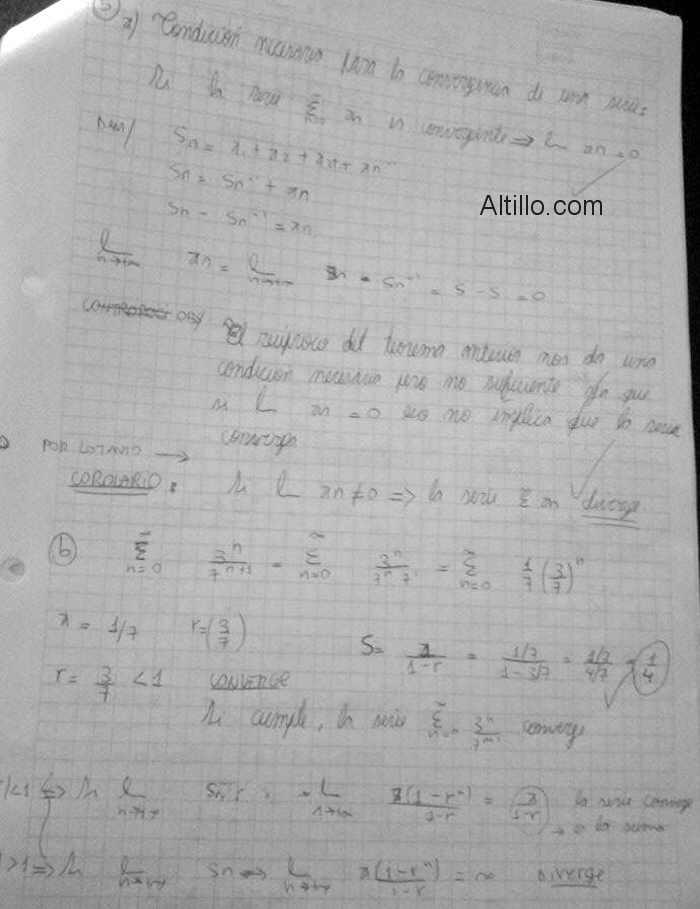 5) a) Condición necesaria para la convergencia de una serie:
Si la serie ∞Σn=0 an es convergente ⇒ L an = 0
Dem/ Sn = a1 + a2 + an-1 + an
Sn = Sn-1 + an
Sn - Sn-1 = an
Altillo.com
L n→+∞ an = L n→+∞ Sn - Sn-1 = S - S = 0
OBS/ El recíproco del teorema anterior nos da una
condición necesaria pero no suficiente ya que
si L an = 0 eso no implica que la serie
converga
POR LO TANTO →
COROLARIO: Si L an ≠ 0 ⇒ la serie Σ an diverge
b) ∞Σn=0 3^n/7^(n+1) = ∞Σn=0 3^n/(7^n·7^1) = ∞Σn=0 1/7 (3/7)^n
a = 1/7 r = (3/7) S = a/(1-r) = (1/7)/(1-3/7) = (1/7)/(4/7) = 1/4
r = 3/7 < 1 CONVERGE
Si cumple, la serie Σ 3^n/7^(n+1) converge
<1 ⇒ Si L n→+∞ Sn = L n→+∞ a(1-r^n)/(1-r) = a/(1-r) la serie converge
→ a la suma
>1 ⇒ Si L n→+∞ Sn ⇒ L n→+∞ a(1-r^n)/(1-r) = ∞ DIVERGE